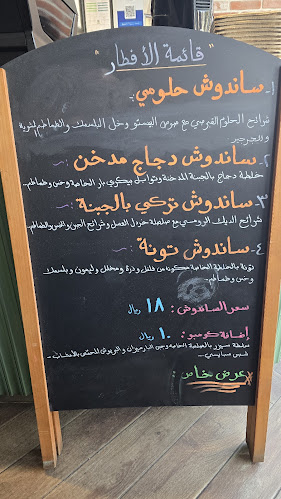 " قائمة الأفطار "
١- ساندوش حلومي :~
شرائح الحلوم القبرصي مع صوص البيستو وخل البلسمك والطماطم المشوية
والجرجير
٢- ساندوش دجاج مدخن :~
خلطة دجاج بالجبنة المدخنة وتوابل سيكري بار الخاصة وخس وطماطم-
٣- ساندوش تركي بالجبنة :~
شرائح الديك الرومي مع صلصلة خردل العسل وشرائح الجبن والخس والطماطم-
٤- ساندوش تونة :~
تونة بالخلطة الخاصة مكونه من فلفل وذرة ومخلل وليمون و بلسمك
وخس وطماطم-
سعر الساندوش : ١٨ ريال
أضافة كومبو : ١٠ ريال
سلطة سيزر بالصلصة الخاصة وجبن البارميزان و
عرض خاص :